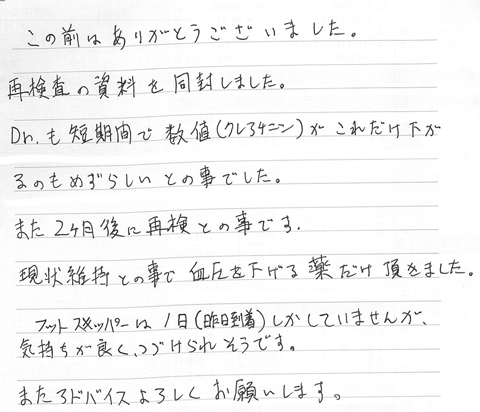 この前はありがとうございました。
再検査の資料を同封しました。
Dr.も短期間で数値(クレアチニン)がこれだけ下が
るのもめずらしいとの事でした。
また2ヶ月後に再検との事です.
現状維持との事で血圧を下げる薬だけ頂きました。
フットスキッパーは1日(昨日到着)しかしていませんが、
気持ちが良く、つづけられそうです。
またアドバイスよろしくお願いします。